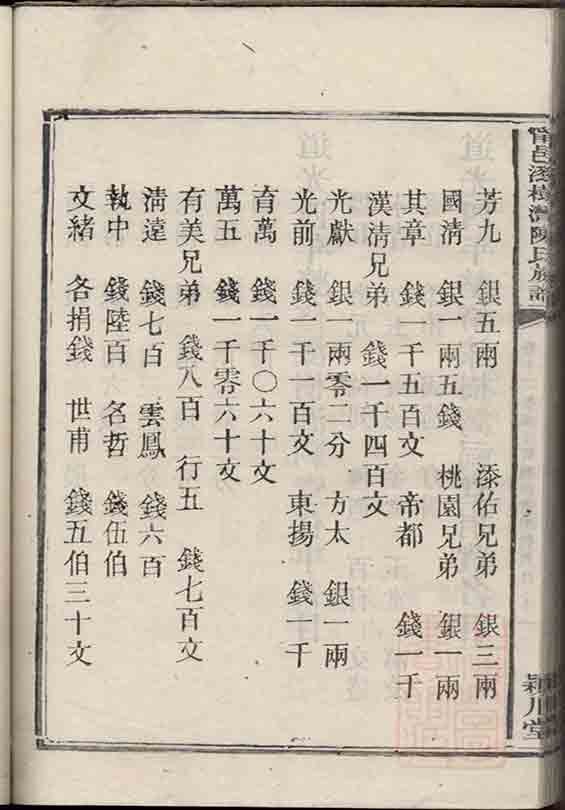 甯邑漆樹灣陳氏族譜
潁川堂
芳九 銀五兩 添佑兄弟 銀三兩
國清 銀一兩五錢 桃園兄弟 銀一兩
其章 錢一千五百文 帝都 錢一千
漢清兄弟 錢一千四百文
光獻 銀一兩零二分 方太 銀一兩
光前 錢一千一百文 東揚 錢一千
育萬 錢一千〇六十文
萬五 錢一千零六十文
有美兄弟 錢八百 行五 錢七百文
淸遠 錢七百 雲鳳 錢六百
執中 錢陸百 名哲 錢伍伯
文緒 各捐錢 世甫 錢五伯三十文